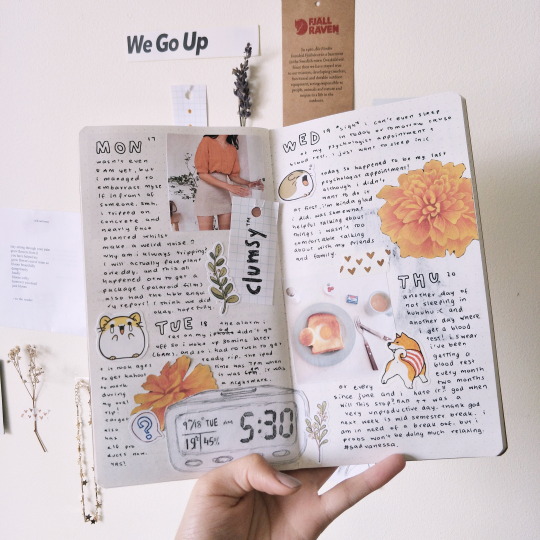 We Go Up
FJALL
RAVEN
MON 17
wasn't even
8am yet, but
i managed to
embarrass myse
lf infront of
someone. smh.
i tripped on
concrete and
nearly face
planted whilst
make a weird noise?
why am i always tripping?
i will actually face plant
one day. and this all
happened otw to get a
package (polaroid film)
also had the hbo enqu
ry report. i think we did
okay hopefully.
clumsy™
TUE 18 the alarm i
set on my didn't go
off so i woke up 20mins later
(6am). and so i had to rush to get
ready. rip. the ipad
time was 7pm when
it was 6am. a
nightmare.
it is now ages
to get kahoot
to work
during
my
9/18 TUE AM
19° 45%
5:30
WED 19 *sigh* i can't even sleep
in today or tomorrow cause
of my psychologist appointment +
blood test. i just want to sleep in:c
today so happened to be my last
psychologist appointment!
although i didn't
want to do it
at first i'm kinda glad
i did. was somewhat
helpful talking about
things i wasn't too
comfortable talking
about with my friends
and family.
THU 20
another day of
not sleeping in
huhuhu :c and
another day where
i get a blood
test! i swear
i've been
getting a
blood test
every month
or every two months
since june and i hate it! god when
will this stop? nah ++ was a
very unproductive day. thank god
next week is mid semester break. i
am in need of a break out. but i
probs won't be doing much relaxing.
#sadvanessa.